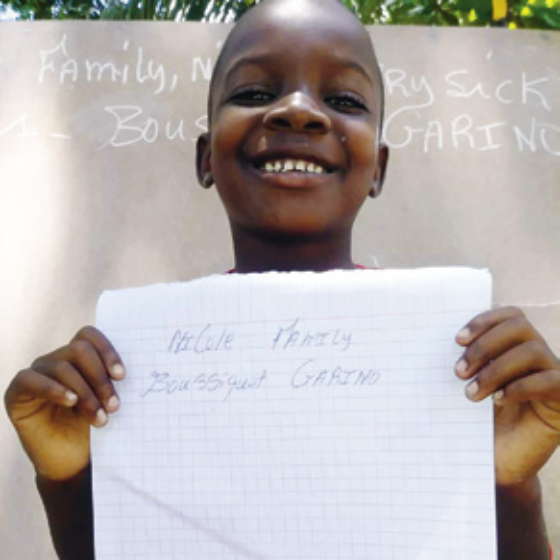 Family, Ni RY Sick
s - Bous GARINO
Nicole Family
Boussiquot GARINO